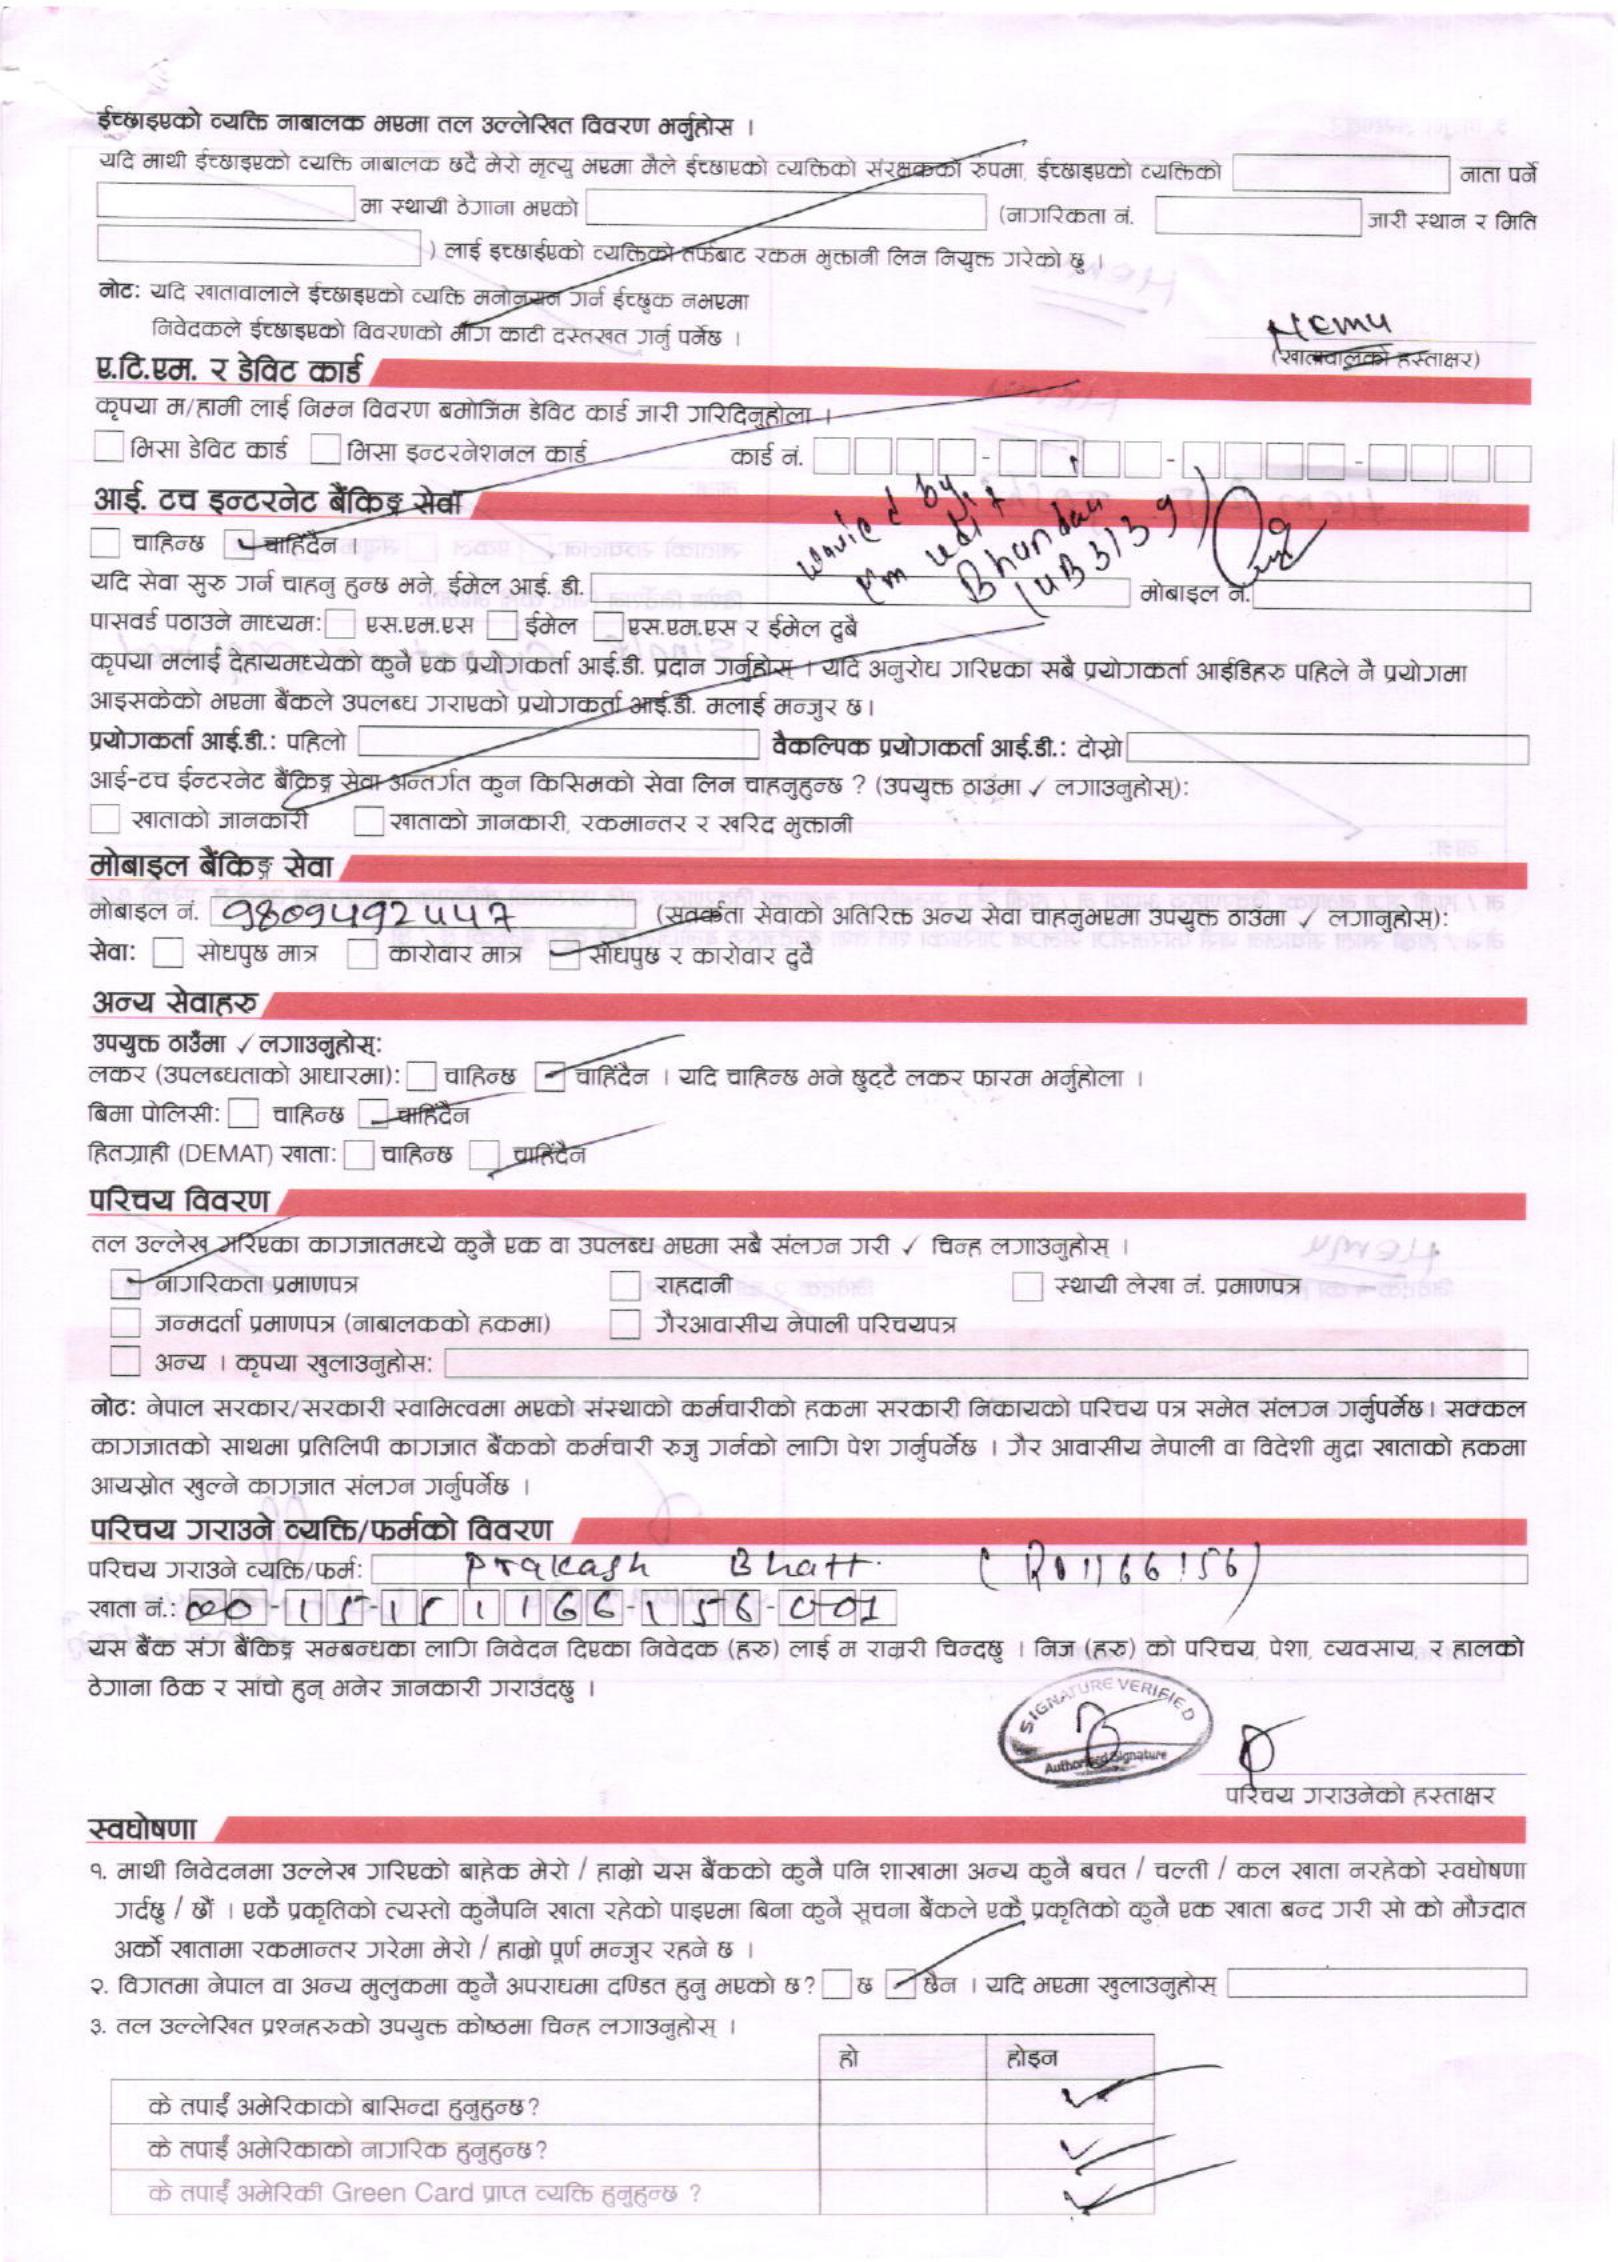 ईच्छाइएको व्यक्ति नाबालक भएमा तल उल्लेखित विवरण भर्नुहोस ।
यदि माथी ईच्छाइएको व्यक्ति नाबालक छदै मेरो मृत्यु भएमा मैले ईच्छाएको व्यक्तिको संरक्षकको रुपमा, ईच्छाइएको व्यक्तिको नाता पर्ने
मा स्थायी ठेगाना भएको (नागरिकता नं. जारी स्थान र मिति
) लाई इच्छाईएको व्यक्तिको तर्फबाट रकम भुक्तानी लिन नियुक्त गरेको छु ।
नोट: यदि खातावालाले ईच्छाइएको व्यक्ति मनोनयन गर्न ईच्छुक नभएमा
निवेदकले ईच्छाइएको विवरणको भाग काटी दस्तखत गर्नु पर्नेछ ।
Hemu
(खातावालको हस्ताक्षर)
ए.टि.एम. र डेविट कार्ड
कृपया म/हामी लाई निम्न विवरण बमोजिम डेविट कार्ड जारी गरिदिनुहोला ।
भिसा डेविट कार्ड भिसा इन्टरनेशनल कार्ड कार्ड नं. - - -
आई. टच इन्टरनेट बैंकिङ्ग सेवा
चाहिन्छ चाहिंदैन ।
by
Bhandari
यदि सेवा सुरु गर्न चाहनु हुन्छ भने, ईमेल आई. डी. मोबाइल नं.
पासवर्ड पठाउने माध्यम: एस.एम.एस ईमेल एस.एम.एस र ईमेल दुबै
कृपया मलाई देहायमध्येको कुनै एक प्रयोगकर्ता आई.डी. प्रदान गर्नुहोस् । यदि अनुरोध गरिएका सबै प्रयोगकर्ता आईडिहरु पहिले नै प्रयोगमा
आइसकेको भएमा बैंकले उपलब्ध गराएको प्रयोगकर्ता आई.डी. मलाई मन्जुर छ।
प्रयोगकर्ता आई.डी.: पहिलो वैकल्पिक प्रयोगकर्ता आई.डी.: दोस्रो
आई-टच ईन्टरनेट बैंकिङ्ग सेवा अन्तर्गत कुन किसिमको सेवा लिन चाहनुहुन्छ ? (उपयुक्त ठाउंमा ✓ लगाउनुहोस्):
खाताको जानकारी खाताको जानकारी, रकमान्तर र खरिद भुक्तानी
मोबाइल बैंकिङ्ग सेवा
मोबाइल नं. (सतर्कता सेवाको अतिरिक्त अन्य सेवा चाहनुभएमा उपयुक्त ठाउंमा ✓ लगानुहोस्):
सेवा: सोधपुछ मात्र कारोवार मात्र सोधपुछ र कारोवार दुवै
अन्य सेवाहरु
उपयुक्त ठाउँमा ✓ लगाउनुहोस्:
लकर (उपलब्धताको आधारमा): चाहिन्छ चाहिंदैन । यदि चाहिन्छ भने छुट्टै लकर फारम भर्नुहोला ।
बिमा पोलिसी: चाहिन्छ चाहिंदैन
हितग्राही (DEMAT) खाता: चाहिन्छ चाहिंदैन
परिचय विवरण
तल उल्लेख गरिएका कागजातमध्ये कुनै एक वा उपलब्ध भएमा सबै संलग्न गरी ✓ चिन्ह लगाउनुहोस् ।
नागरिकता प्रमाणपत्र राहदानी स्थायी लेखा नं. प्रमाणपत्र
जन्मदर्ता प्रमाणपत्र (नाबालकको हकमा) गैरआवासीय नेपाली परिचयपत्र
अन्य । कृपया खुलाउनुहोस:
नोट: नेपाल सरकार/सरकारी स्वामित्वमा भएको संस्थाको कर्मचारीको हकमा सरकारी निकायको परिचय पत्र समेत संलग्न गर्नुपर्नेछ। सक्कल
कागजातको साथमा प्रतिलिपी कागजात बैंकको कर्मचारी रुजु गर्नको लागि पेश गर्नुपर्नेछ । गैर आवासीय नेपाली वा विदेशी मुद्रा खाताको हकमा
आयस्रोत खुल्ने कागजात संलग्न गर्नुपर्नेछ ।
परिचय गराउने व्यक्ति/फर्मको विवरण
परिचय गराउने व्यक्ति/फर्म: Prakash Bhatt (R01166156)
खाता नं.:
यस बैंक संग बैंकिङ्ग सम्बन्धका लागि निवेदन दिएका निवेदक (हरु) लाई म राम्ररी चिन्दछु । निज (हरु) को परिचय, पेशा, व्यवसाय, र हालको
ठेगाना ठिक र सांचो हुन् भनेर जानकारी गराउंदछु ।
SIGNATURE VERIFIED
Authorised Signature
परिचय गराउनेको हस्ताक्षर
स्वघोषणा
१. माथी निवेदनमा उल्लेख गरिएको बाहेक मेरो / हाम्रो यस बैंकको कुनै पनि शाखामा अन्य कुनै बचत / चल्ती / कल खाता नरहेको स्वघोषणा
गर्दछु / छौं । एकै प्रकृतिको त्यस्तो कुनैपनि खाता रहेको पाइएमा बिना कुनै सूचना बैंकले एकै प्रकृतिको कुनै एक खाता बन्द गरी सो को मौज्दात
अर्को खातामा रकमान्तर गरेमा मेरो / हाम्रो पूर्ण मन्जुर रहने छ ।
२. विगतमा नेपाल वा अन्य मुलुकमा कुनै अपराधमा दण्डित हुनु भएको छ? छ छैन । यदि भएमा खुलाउनुहोस्
३. तल उल्लेखित प्रश्नहरुको उपयुक्त कोष्ठमा चिन्ह लगाउनुहोस् ।
हो होइन
के तपाईं अमेरिकाको बासिन्दा हुनुहुन्छ? ✓
के तपाईं अमेरिकाको नागरिक हुनुहुन्छ? ✓
के तपाईं अमेरिकी Green Card प्राप्त व्यक्ति हुनुहुन्छ ? ✓